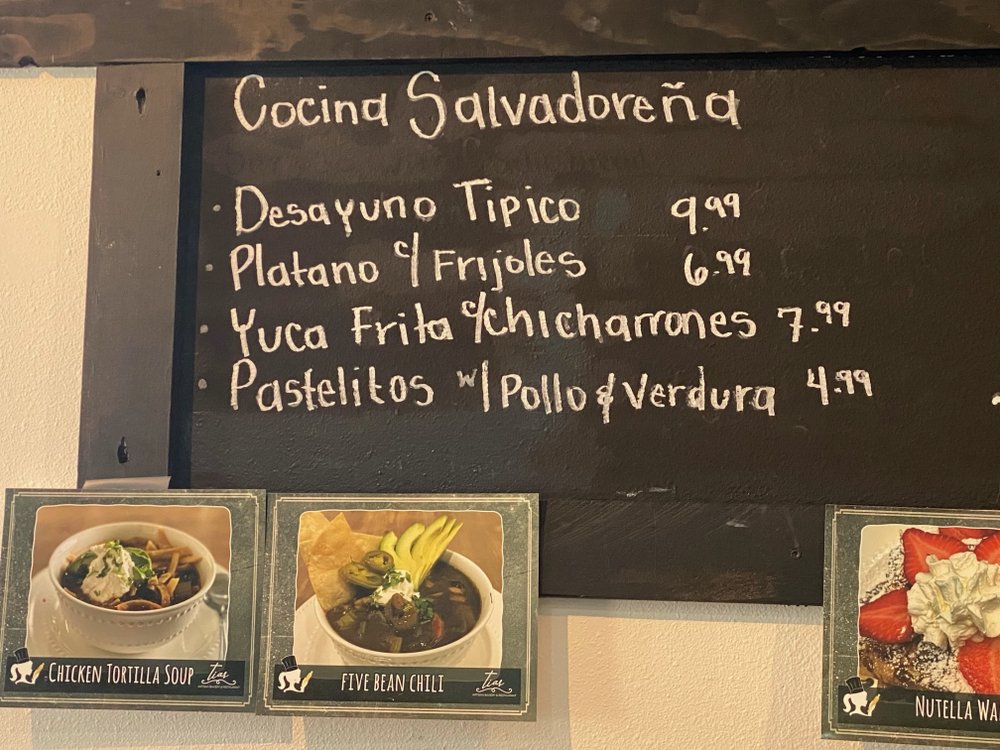 Cocina Salvadoreña
· Desayuno Tipico 9.99
· Platano c/ Frijoles 6.99
· Yuca Frita c/chicharrones 7.99
· Pastelitos w/ Pollo & Verdura 4.99
CHICKEN TORTILLA SOUP
tias
FIVE BEAN CHILI
tias
NUTELLA WA